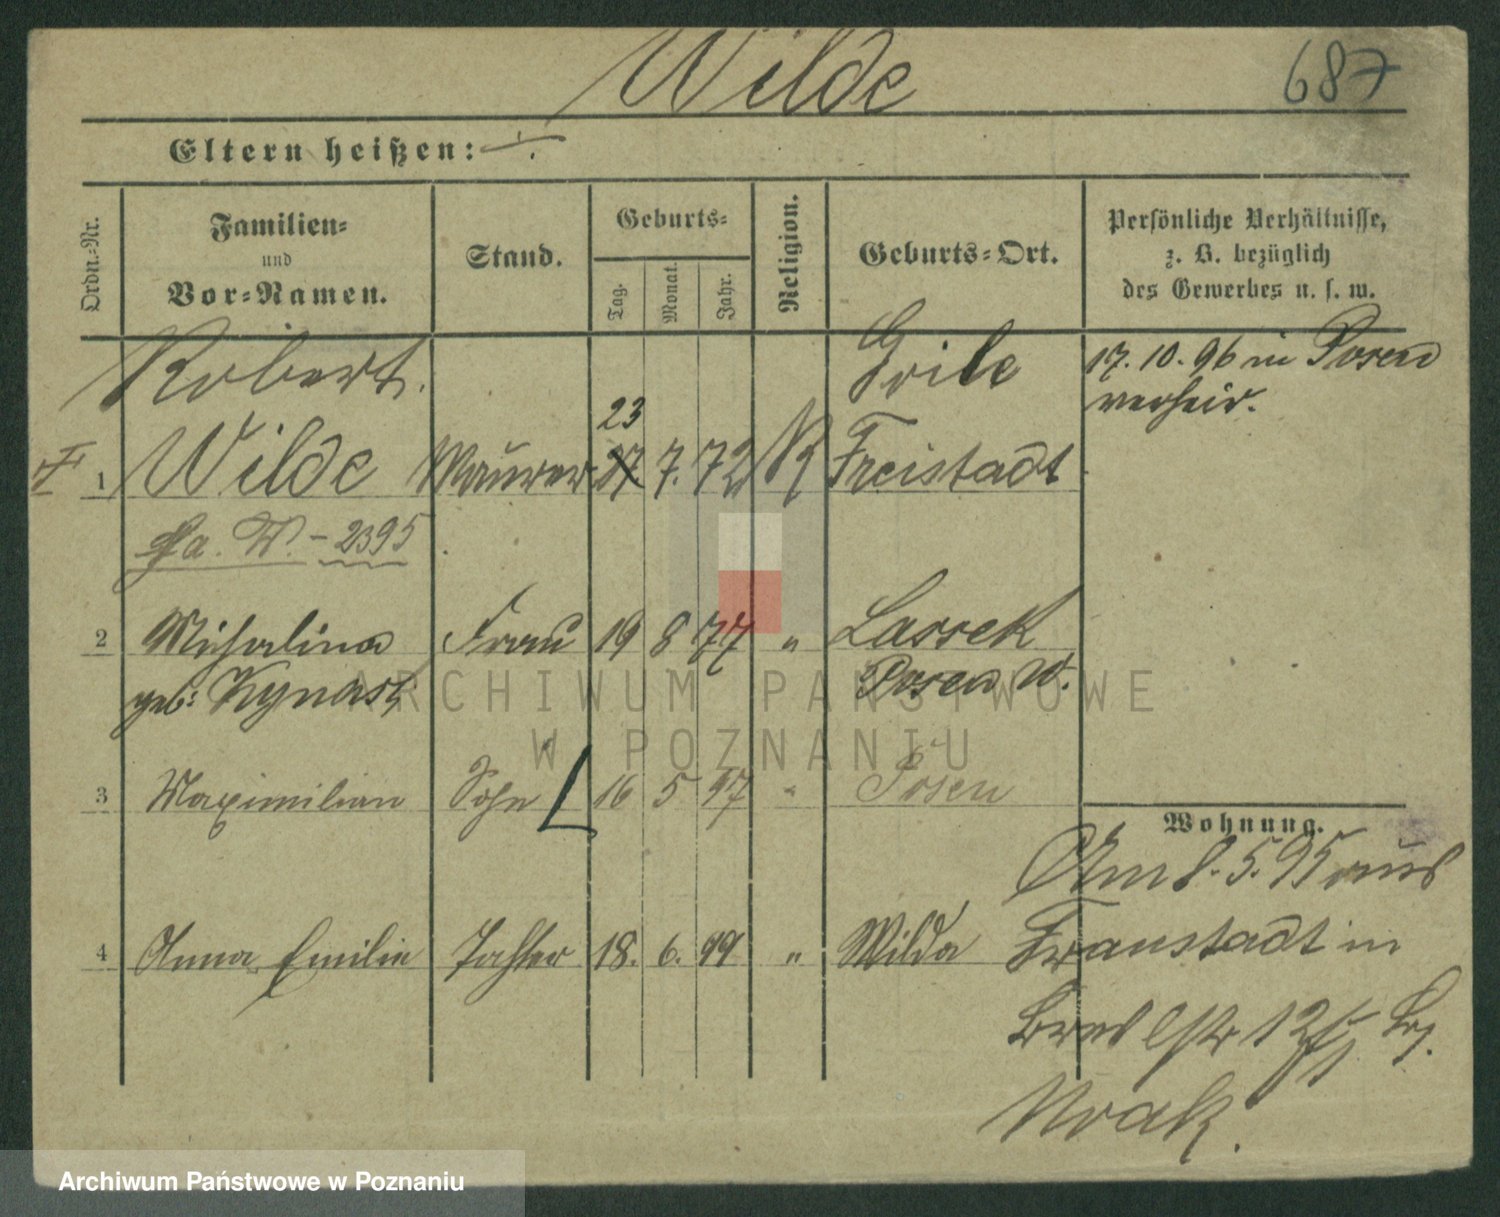 Wilde
687
Eltern heißen: ÷
Ordn.-Nr.
Familien-
und
Vor-Namen.
Stand.
Geburts-
Tag.
Monat.
Jahr.
Religion.
Geburts-Ort.
Persönliche Verhältnisse,
z. B. bezüglich
des Gewerbes u. s. w.
Robert.
17. 10. 96 in Posen
verheir.
23
1 Wilde Maurer 27 7. 72 K Freistadt
Pa. W. - 2395
2 Michalina Frau 19 8 77 " Lassek
geb: Kynast Posen W.
3 Maximilian Sohn 16 5 97 " Posen
Wohnung.
Am 8. 5. 95 aus
4 Anna Emilie Tochter 18. 6. 99 " Wilda
Fraustadt in
Noak.
ARCHIWUM PAŃSTWOWE
W POZNANIU
Archiwum Państwowe w Poznaniu